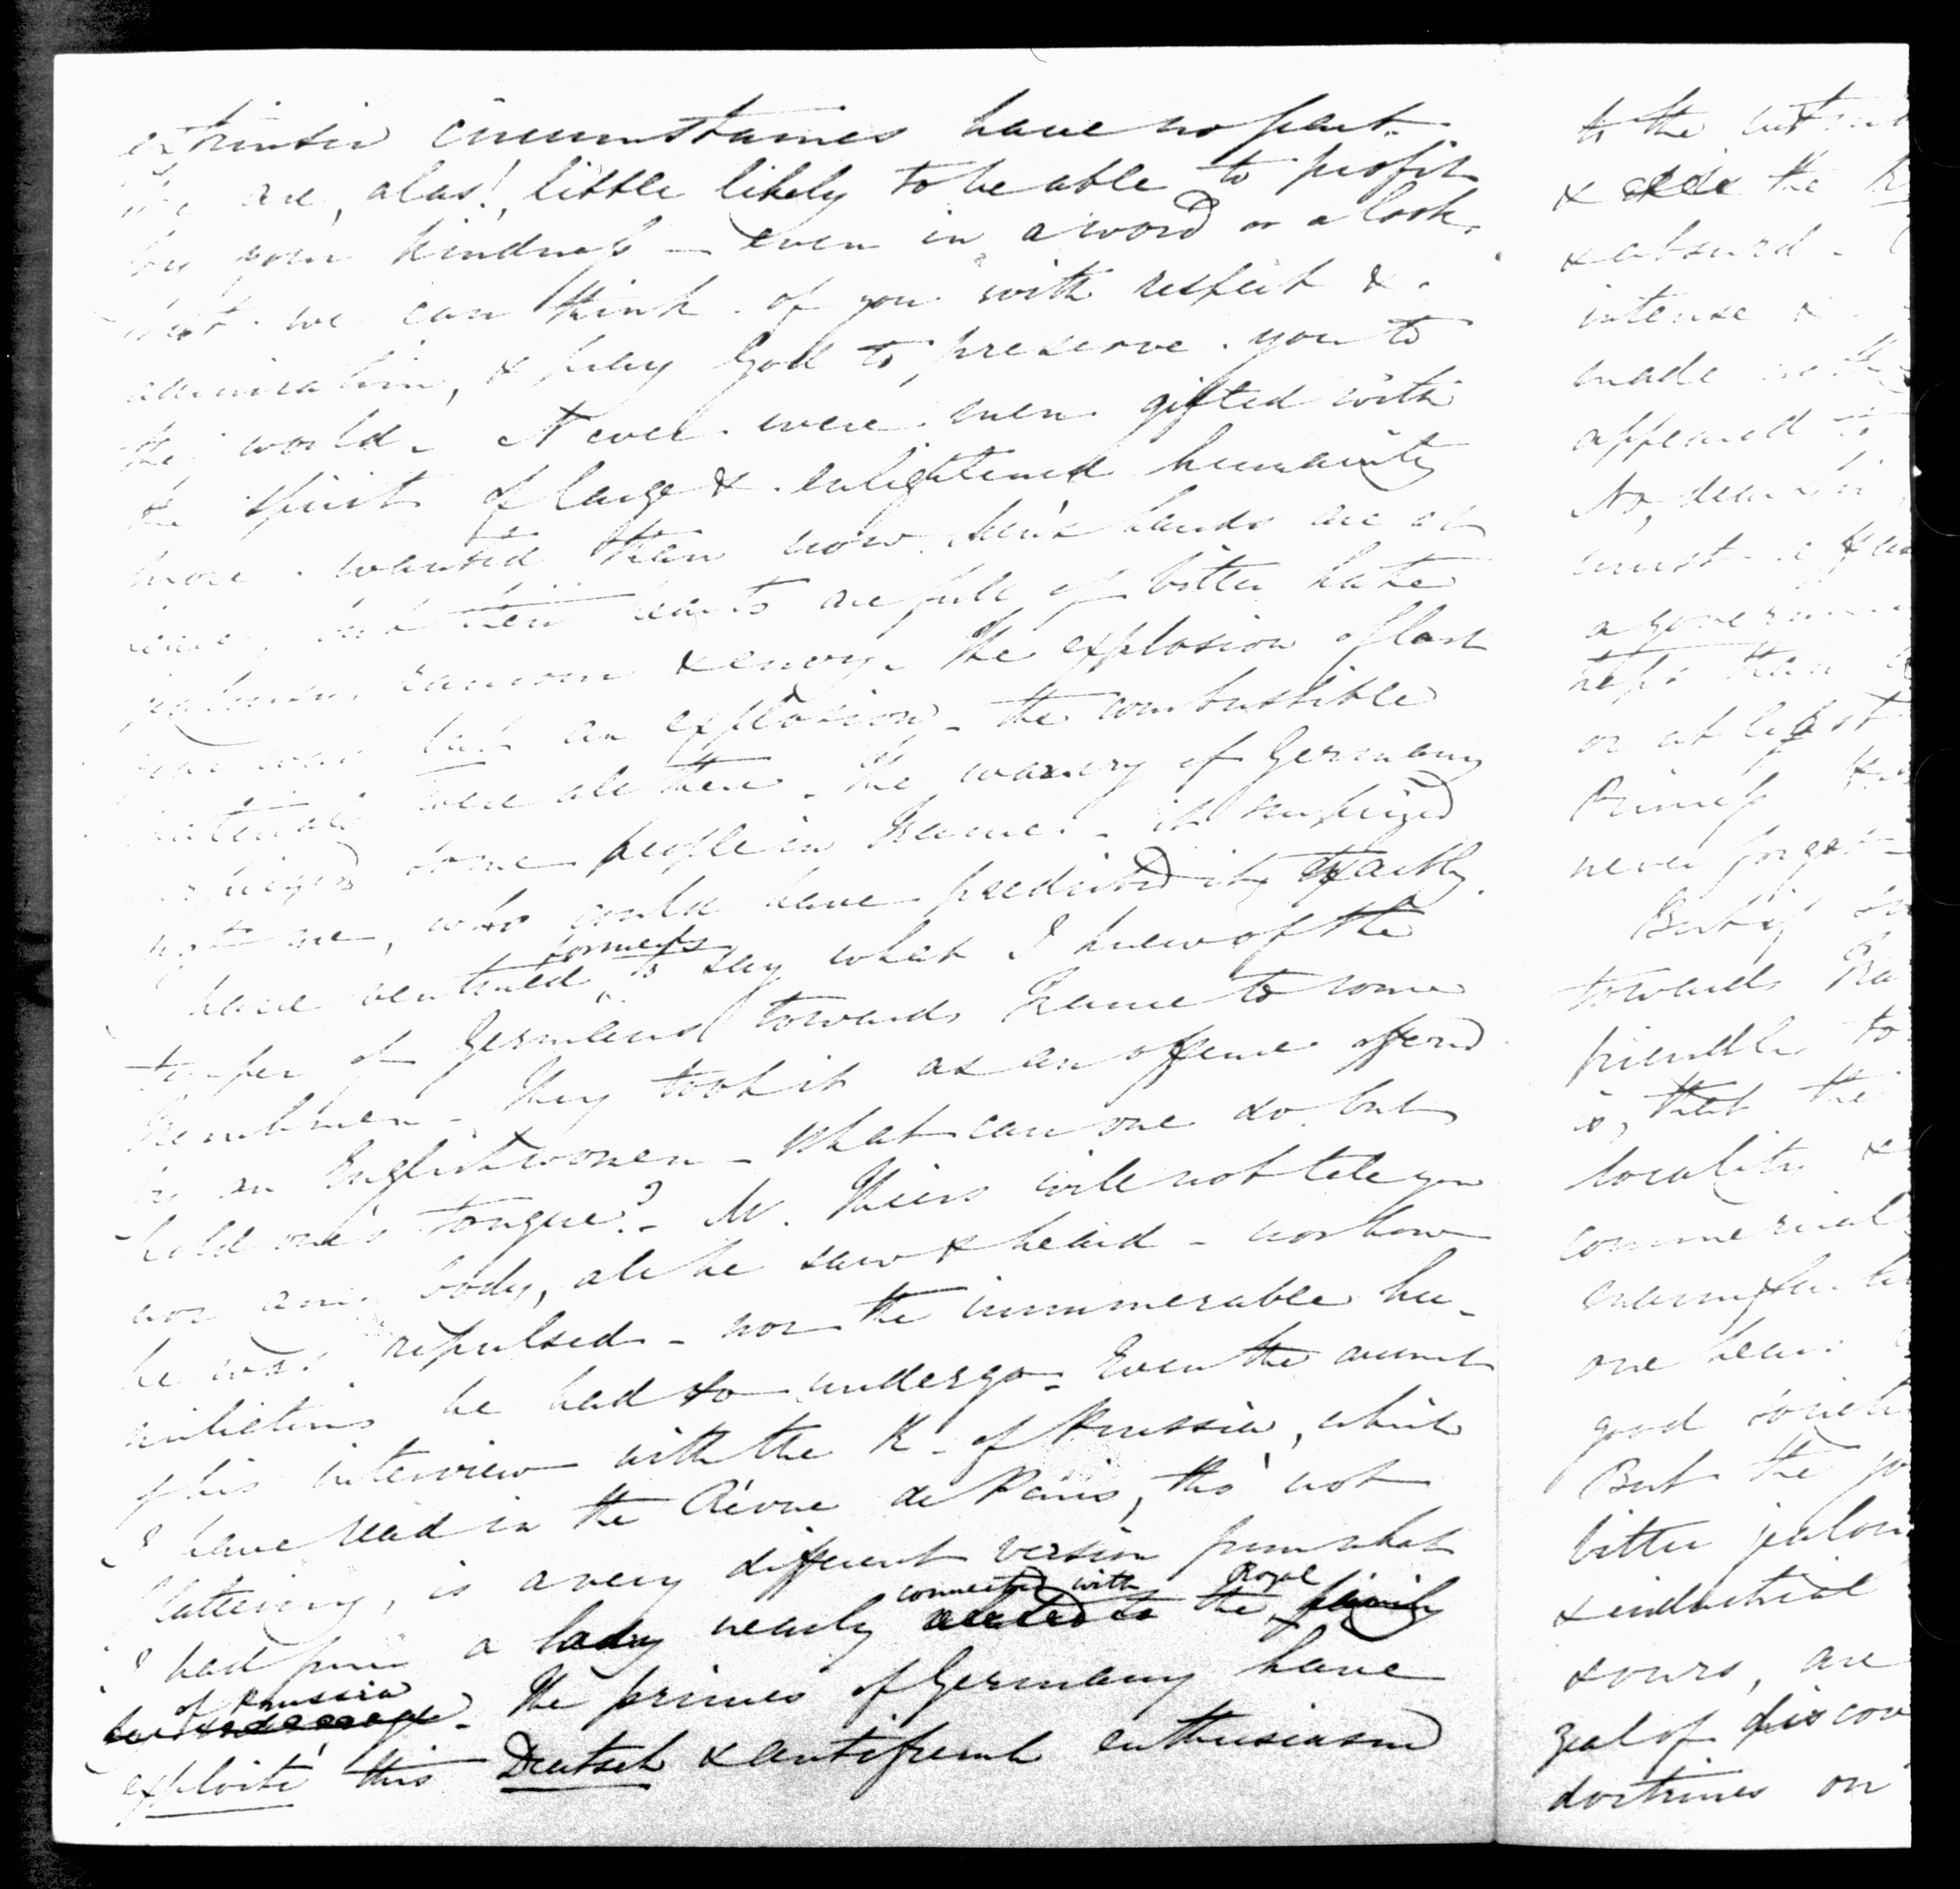 extrinsic circumstances have no part.
We are, alas!, little likely to be able to profit
by your kindness — even in a word or a look,
but we can think of you with respect &
admiration, & pray God to preserve you to
the world. Never were men gifted with
the spirit of large & enlightened humanity
more wanted than now. Men's hands are at
peace, but their hearts are full of bitter hate
jealousy, rancour & envy. The explosion of last
year was but an explosion – the combustible
materials were all there. The warcry of Germany
surprized some people in France – it surprized
not me, who could have predicted it exactly.
I have ventured formerly to say what I knew of the
temper of Germans towards France to some
Frenchmen – They took it as an offence offered
by an Englishwoman – What can one do but
hold one's tongue? – M. Thiers will not tell you
nor any body, all he saw & heard – nor how
he was repulsed – nor the innumerable hu-
miliations he had to undergo. Even the account
of his interview with the K. of Prussia, which
I have read in the Révue de Paris, tho' not
flattering, is a very different version from what
I had from a lady nearly connected with the Royal family
of Prussia. The princes of Germany have
exploité this Deutsch & antifrench enthusiasm
to the
& the
& absurd –
intense &
made
appeared to
No, dear Sir,
must
a governm
steps than
or at least
Princes
never forget
But if
towards
friendly to
is, that the
locality &
commercial
one hears
good society
But the
bitter jealou
& industrial
& ours, are
zeal of discov
doctrines on